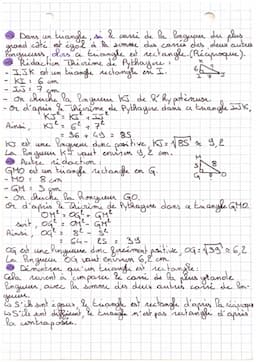 Dans un triangle, si le carré de la longueur du plus
grand côté est égal à la somme des carrés des deux autres
longueurs alors ce triangle est rectangle. (Réciproque).
Rédaction Théorème de Pythagore :
- IJK est un triangle rectangle en I.
- KI = 6 cm
- IJ = 7 cm
- On cherche la longueur KJ de l'hypoténuse.
- D'après le Théorème de Pythagore dans ce triangle IJK,
KJ² = KI² + IJ²
Ainsi, KJ² = 6² + 7²
= 36 + 49 = 85
KJ est une longueur donc positive, KJ = √85 ≈ 9,2
La longueur KJ vaut environ 9,2 cm.
Autre rédaction :
GMO est un triangle rectangle en G.
- MO = 8 cm
- GM = 5 cm
- On cherche la longueur GO.
On d'après le Théorème de Pythagore dans ce triangle GMO.
OM² = OG² + GM²
soit, OG² = OM² - GM²
Ainsi, OG² = 8² - 5²
= 64 - 25 = 39
OG est une longueur donc forcément positive, OG = √39 ≈ 6,2
La longueur OG vaut environ 6,2 cm.
Démontrer qu'un triangle est rectangle :
Cela revient à comparer le carré de la plus grande
longueur, avec la somme des deux autres carrés de lon-
gueur.
↳ S'ils sont égaux, le triangle est rectangle d'après la réciproque
↳ S'ils sont différent, le triangle n'est pas rectangle d'après
la contraposée.